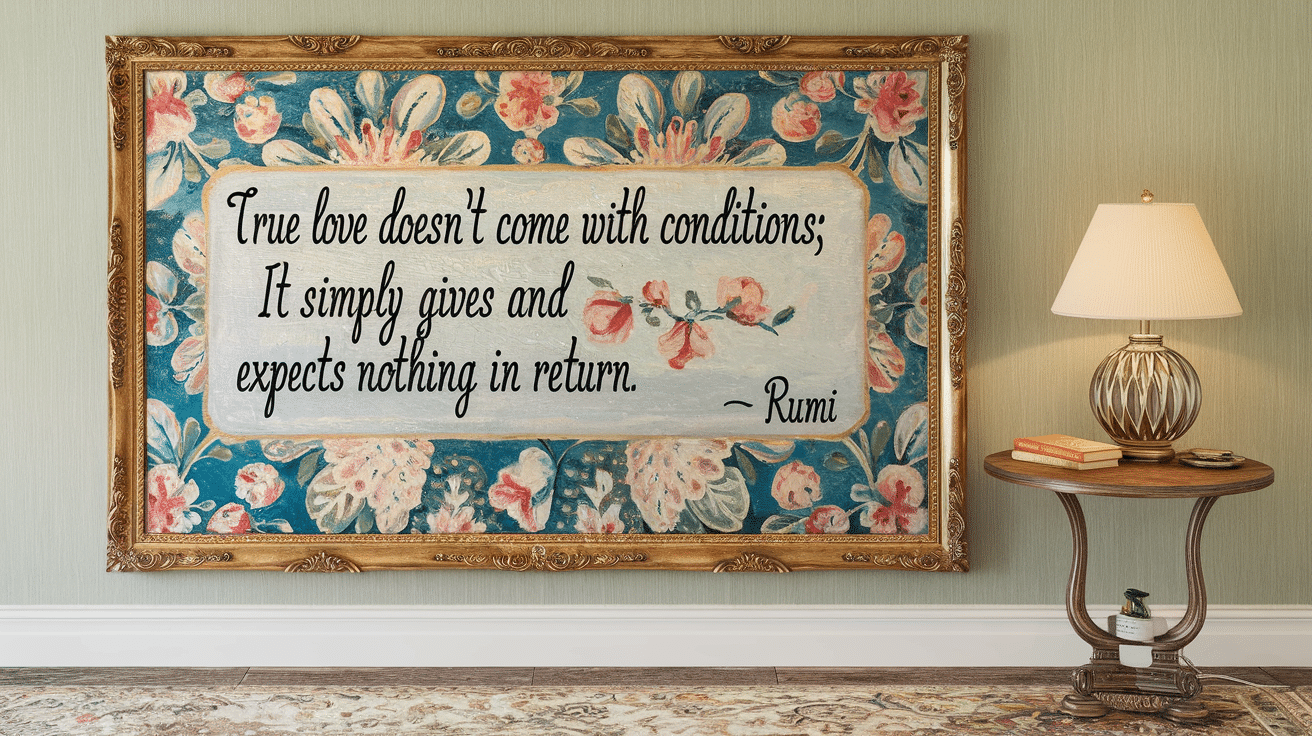 True love doesn't come with conditions;
It simply gives and
expects nothing in return.
~ Rumi